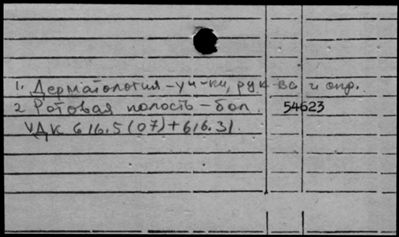 1. Дерматология – уч-ки, рук-ва и опр.
2 Ротовая полость – бол. 54623
УДК 616.5(07)+616.31